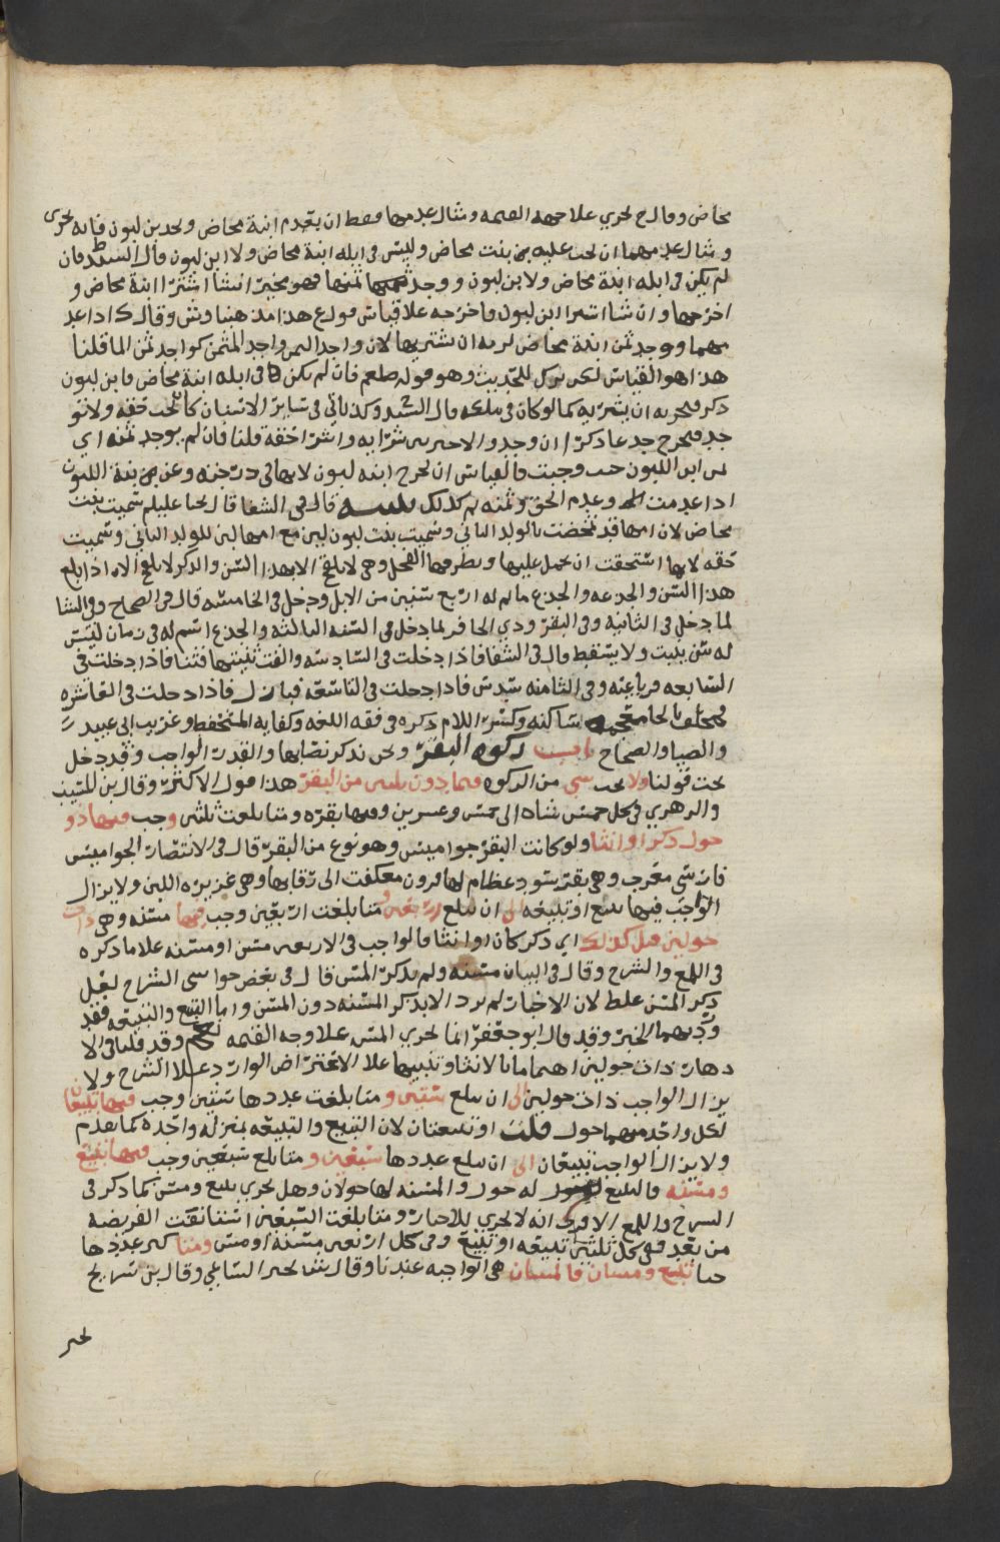 مخاض وقال ح يجزي علا جهه القيمه ومثال عدمها فقط ان يعدم ابنة مخاض ويجد بن لبون فانه يجزى
ومثال عدمهما ان يجب عليه بنت مخاض وليس فى ابله ابنة مخاض ولا ابن لبون قال السيد فان
لم يكن فى ابله ابنة مخاض ولا بن لبون ووجد ثمنها فهو مخير ان شا اشترا ابنة مخاض و
اخرجها وان شا اشترا ابن لبون فاخرجه علا قياس قول ع هذا مذ هبنا وش وقال ك اذا عد
مهما ووجد ثمن ابنة مخاض لزمه ان يشتريها لان واجد الثمن واجد المثمن كواجد ثمن الما قلنا
هذا هو القياس لكن ترك للحديث وهو قوله صلعم فان لم يكن فى ابله ابنة مخاض فابن لبون
ذكر فيجزيه ان يشتريه كما لو كان فى ملكه قال السيد وكذلك ياتي فى سائر الاسنان كان يجب حقه ولا تو
جد فيخرج جدعا ذكرا ان وجد والا خير بين شرايه وشرا حقة قلنا فان لم يوجد ثمنه اي
ثمن ابن اللبون حيث وجبت فالقياس ان يخرج ابنه لبون لانها فى درجته وعن بنة اللبون
اذا عدمت وعدم الحق وثمنه ثم كذلك تنبيه قال فى الشفا قال يحيا عليلم سميت بنت
مخاض لان امها قد تمخضت بالولد الثاني وسميت بنت لبون لبن مع امها لبن للولد الثاني وسميت
حقه لانها استحقت ان يحمل عليها ويطرقها الفحل وهي لا تلقح الا بهذا السن والذكر لا يلقح الا اذا بلغ
هذا السن والجدعه والجدع ما تم له اربع سنين من الابل ودخل فى الخامسه قال فى الصحاح وفى الشا
لما دخل فى الثانيه وفى البقر وذي الحافر لما دخل فى السنه الثالثه والجدع اسم له فى زمان ليس
له سن ينبت ولا يسقط قال فى الشفا فاذا دخلت فى السادسه والقت ثنيتها فثنا فاذا دخلت فى
السابعه فرباعيه وفى الثامنه سدس فاذا دخلت فى التاسعه فبازل فاذا دخلت فى العاشره
فمخلف بالخا معجمه ساكنه وكسر اللام ذكره فى فقه اللغه وكفايه المتحفظ وغريب ابي عبيد
والضيا والصحاح باب زكوه البقر ونحن نذكر نصابها والقدر الواجب وقد دخل
تحت قولنا ولا يجب شي من الزكوه فيما دون ثلثين من البقر هذا قول الاكثر وقال بن المسيب
والزهري فى كل خمس شاه الى خمس وعشرين وفيها بقره ومتا بلغت ثلثين وجب فيها ذو
حول ذكرا او انثا ولو كانت البقر جواميس وهو نوع من البقر قال فى الانتصار الجواميس
فارسي معرب وهي بقر سود عظام لها قرون معكفت الى رقابها وهي غزيره اللبن ولا يزال
الواجب فيها تبيع او تبيعه الى ان تبلغ اربعين ومتا بلغت اربعين وجب فيها مسنه وهي ذات
حولين فبل كذلك اي ذكر كان او انثا فالواجب فى الاربعين مسن او مسنه علا ما ذكره
فى اللمع والشرح وقال فى البيان مسنه ولم يذكر المسن قال فى بعض حواشي الشرح لعل
ذكر المسن غلط لان الاخبار لم ترد الا بذكر المسنه دون المسن واما التبيع والتبيعه فقد
ورد بهما الخبر وقد قال ابو جعفر انما يجزي المسن علا وجه القيمه وقد قلنا فى الا
زهار ذات حولين اهتماما بالانثا وتنبيها علا الاعتراض الوارد علا الشرح ولا
يزال الواجب ذات حولين الى ان تبلغ ستين ومتا بلغت عددها ستين وجب فيها تبيعان
لكل واحد منهما حول قلت او تبيعتان لان التبيع والتبيعه بمنزله واحدة كما تقدم
ولا يزال الواجب تبيعان الى ان تبلغ عددها سبعين ومتا بلغ سبعين وجب فيها تبيع
ومسنه فالتبيع له حول والمسنه لها حولان وهل يجزي تبيع ومسن كما ذكر فى
الشرح واللمع الاقرب انه لا يجزي للاخبار ومتا بلغت السبعين استانفت الفريضه
من بعد ففى كل ثلثين تبيعه او تبيع وفى كل اربعين مسنه او مسن ومتا كثر عددها
حتا تبيع ومسنات فالمسنات هي الواجبه عندنا وقال ش يخير الساعي وقال بن سريج
يخير